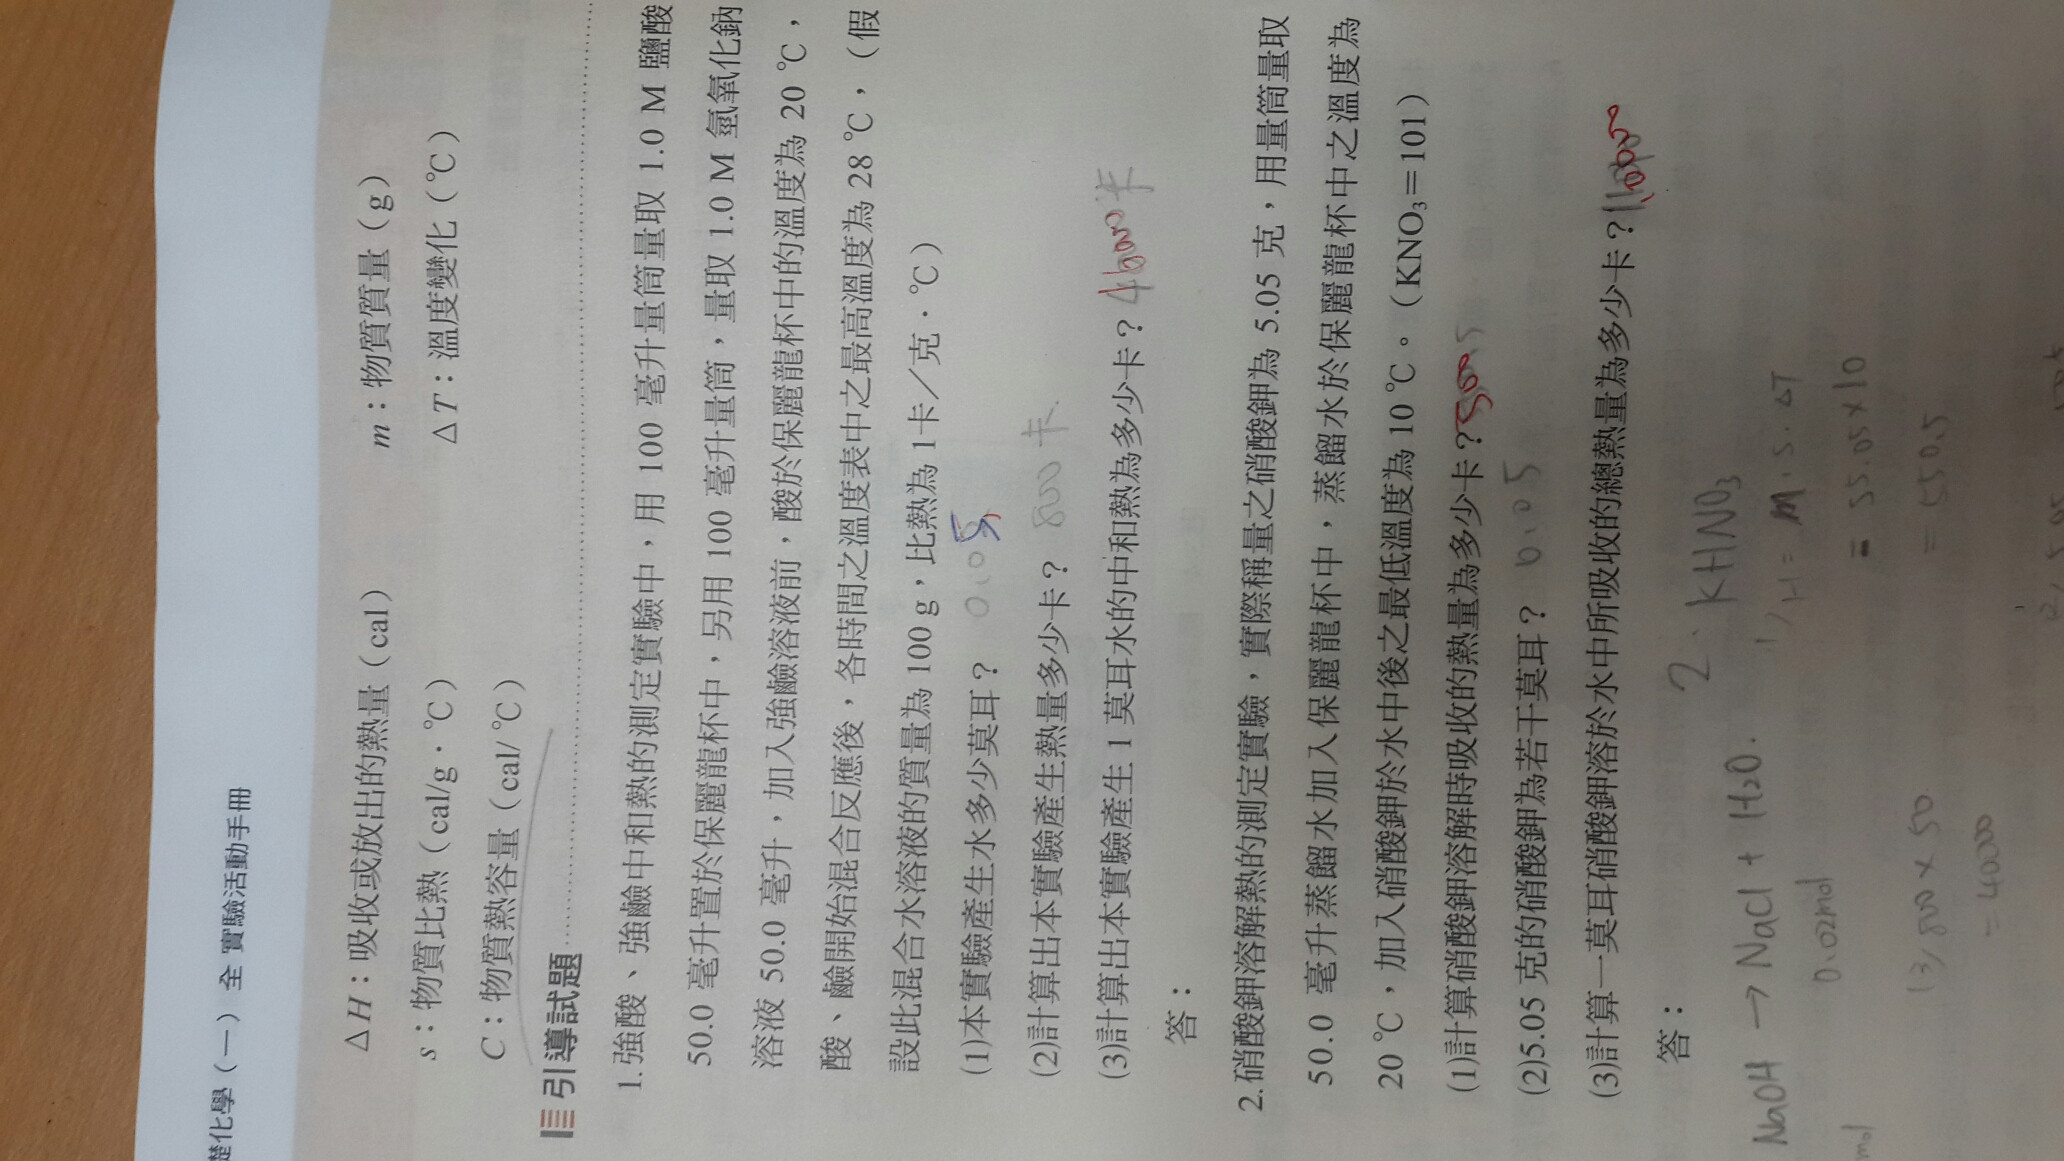 楚化學(一) 全 實驗活動手冊
ΔH:吸收或放出的熱量(cal) m:物質質量(g)
s:物質比熱(cal/g·℃) ΔT:溫度變化(℃)
C:物質熱容量(cal/℃)
引導試題
1.強酸、強鹼中和熱的測定實驗中,用 100 毫升量筒量取 1.0 M 鹽酸
50.0 毫升置於保麗龍杯中,另用 100 毫升量筒,量取 1.0 M 氫氧化鈉
溶液 50.0 毫升,加入強鹼溶液前,酸於保麗龍杯中的溫度為 20 ℃,
酸、鹼開始混合反應後,各時間之溫度表中之最高溫度為 28 ℃,(假
設此混合水溶液的質量為 100 g,比熱為 1卡/克·℃)
(1)本實驗產生水多少莫耳? 0.05
(2)計算出本實驗產生熱量多少卡? 800卡.
(3)計算出本實驗產生 1 莫耳水的中和熱為多少卡?
答:
2.硝酸鉀溶解熱的測定實驗,實際稱量之硝酸鉀為 5.05 克,用量筒量取
50.0 毫升蒸餾水加入保麗龍杯中,蒸餾水於保麗龍杯中之溫度為
20 ℃,加入硝酸鉀於水中後之最低溫度為 10 ℃。(KNO₃=101)
(1)計算硝酸鉀溶解時吸收的熱量為多少卡?
(2)5.05 克的硝酸鉀為若干莫耳? 0.05
(3)計算一莫耳硝酸鉀溶於水中所吸收的總熱量為多少卡?
答:
2. KHNO₃
NaOH → NaCl + H₂O.
H = m·s·ΔT
0.02mol
= 55.05×10
mol
(3) 800×50
= 550.5
= 40000